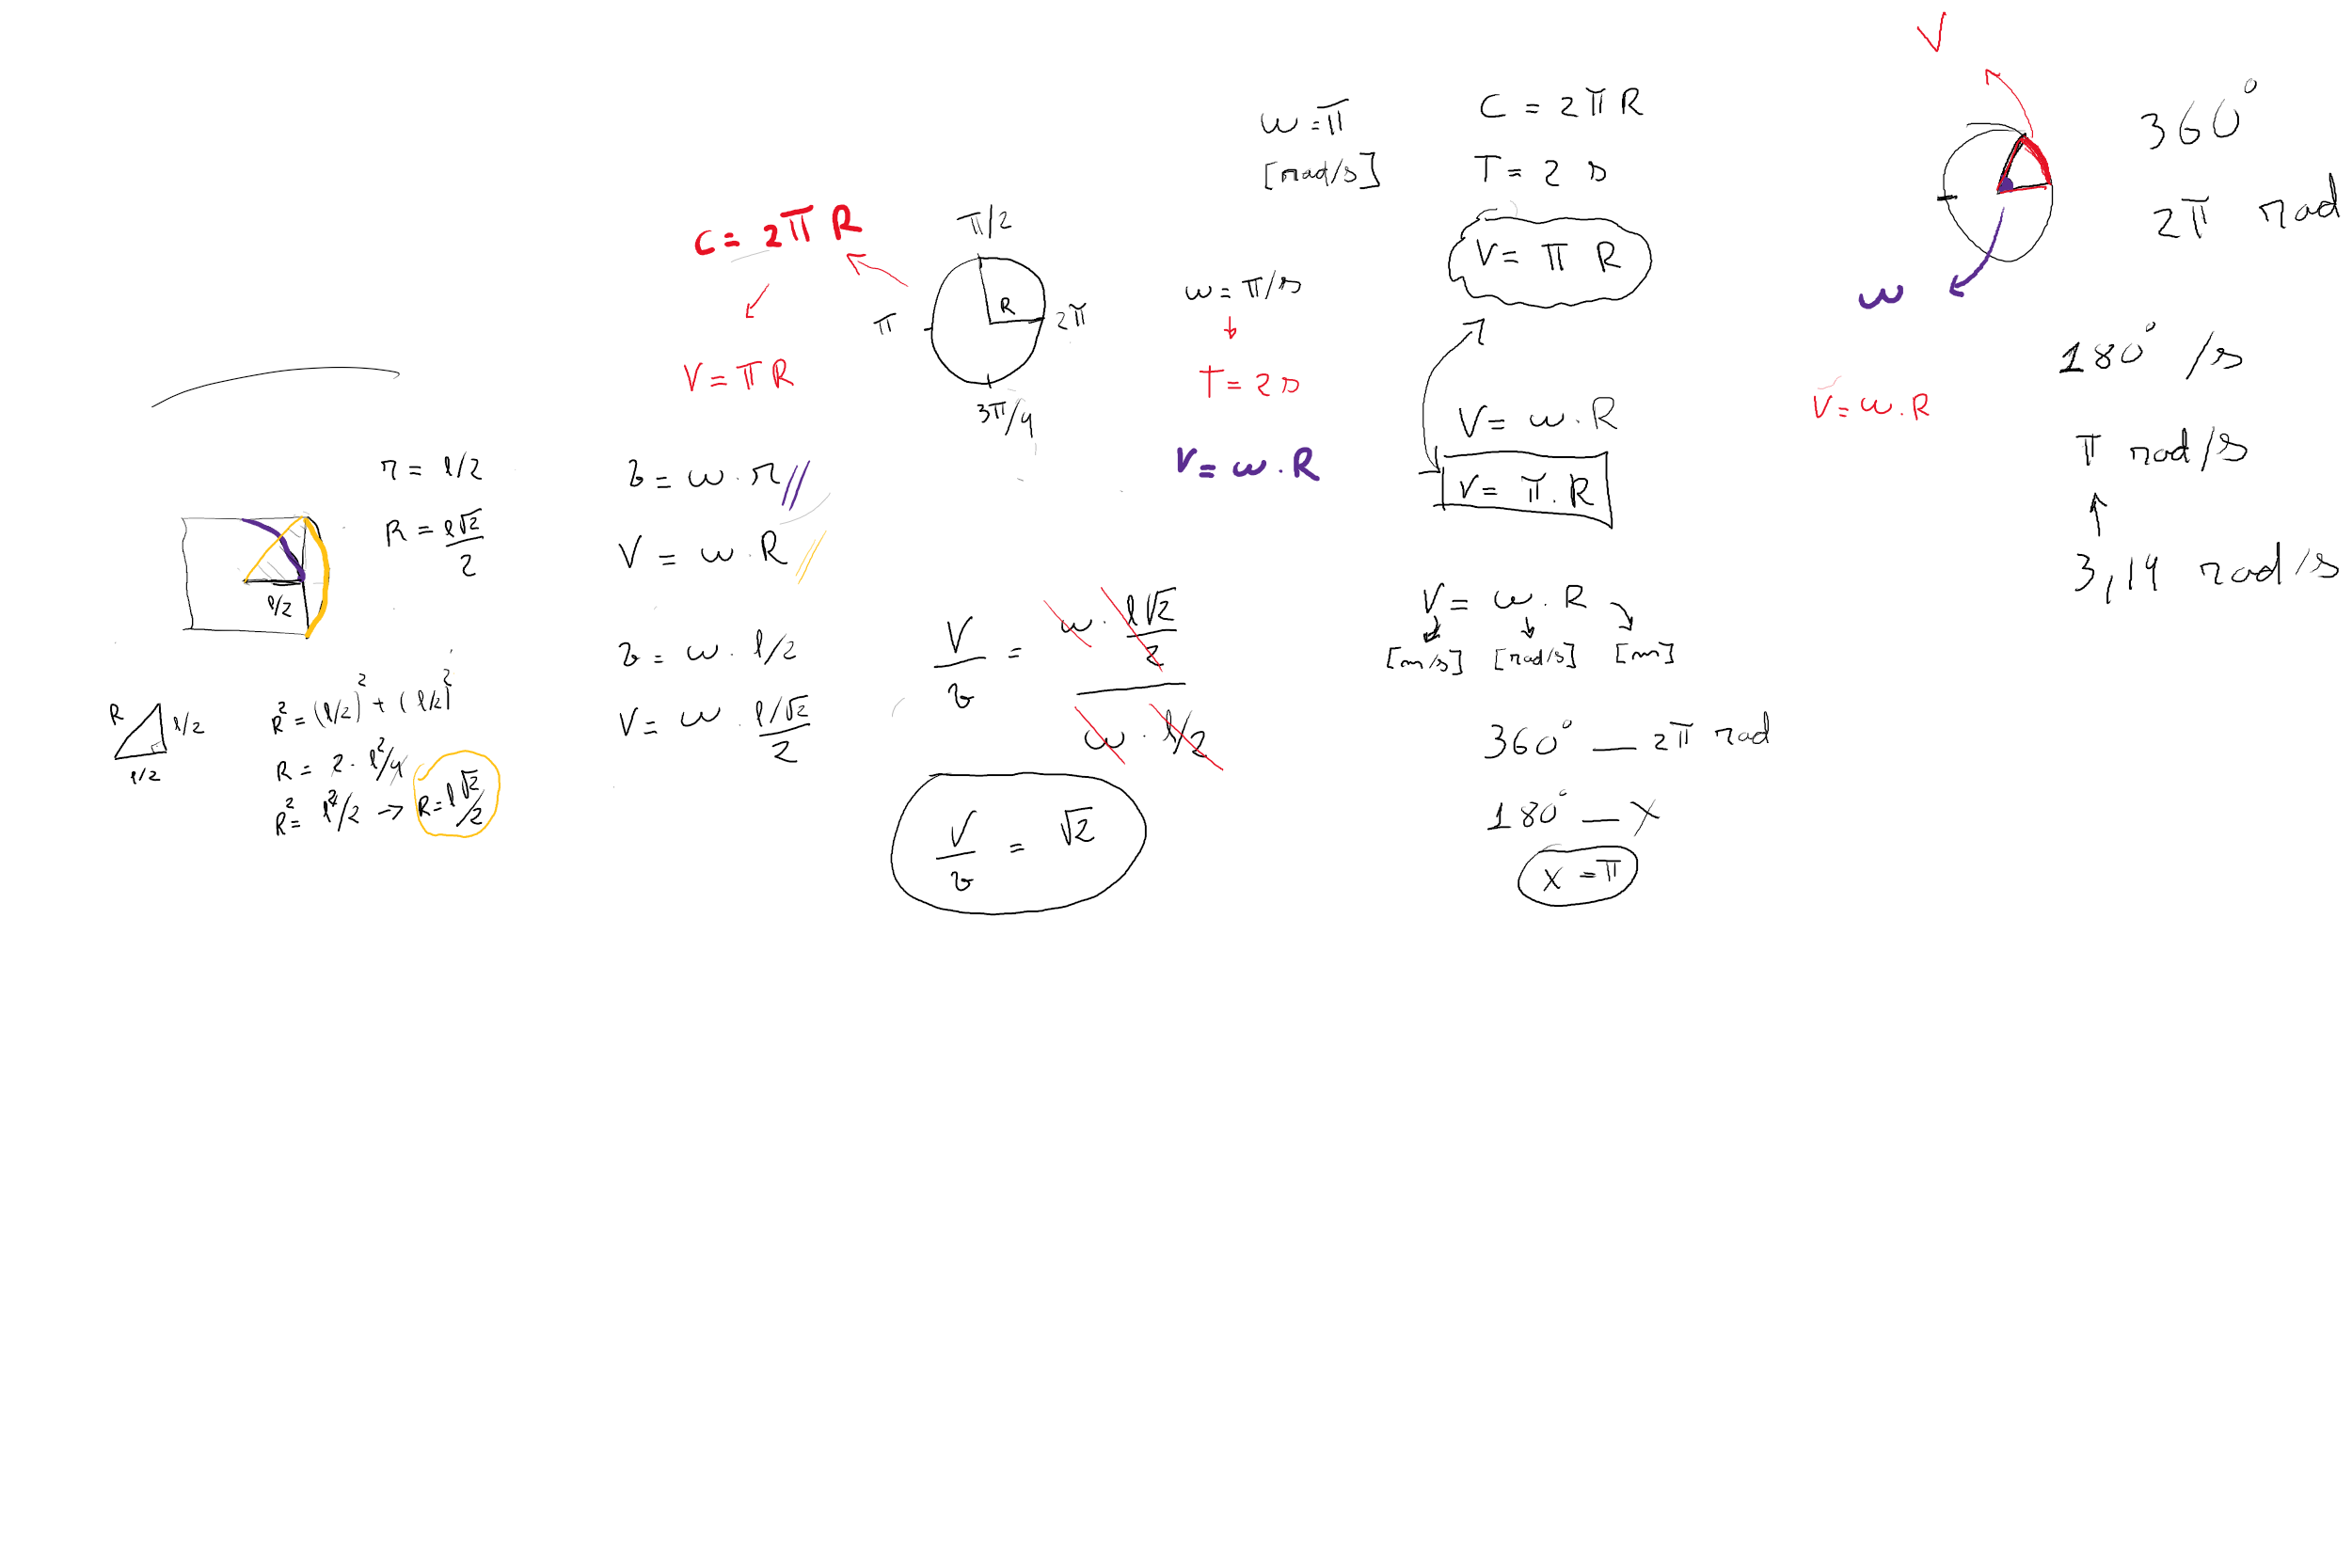 r = l/2
R = l√2/2
l/2
R
l/2
l/2
R² = (l/2)² + (l/2)²
R = 2 · l²/4
R² = l²/2 → R = l√2/2
C = 2π R
V = π R
π/2
π
R
2π
3π/4
ω = π/s
T = 2 s
V = ω . R
v = ω . r
V = ω . R
v = ω . l/2
V = ω . l/√2/2
V/v = ω . l√2/2 / ω . l/2
V/v = √2
ω = π
[rad/s]
C = 2π R
T = 2 s
V = π R
V = ω . R
V = π . R
V = ω . R
[m/s] [rad/s] [m]
360° — 2π rad
180° — x
x = π
V
ω
V = ω . R
360°
2π rad
180° /s
π rad/s
↑
3,14 rad/s